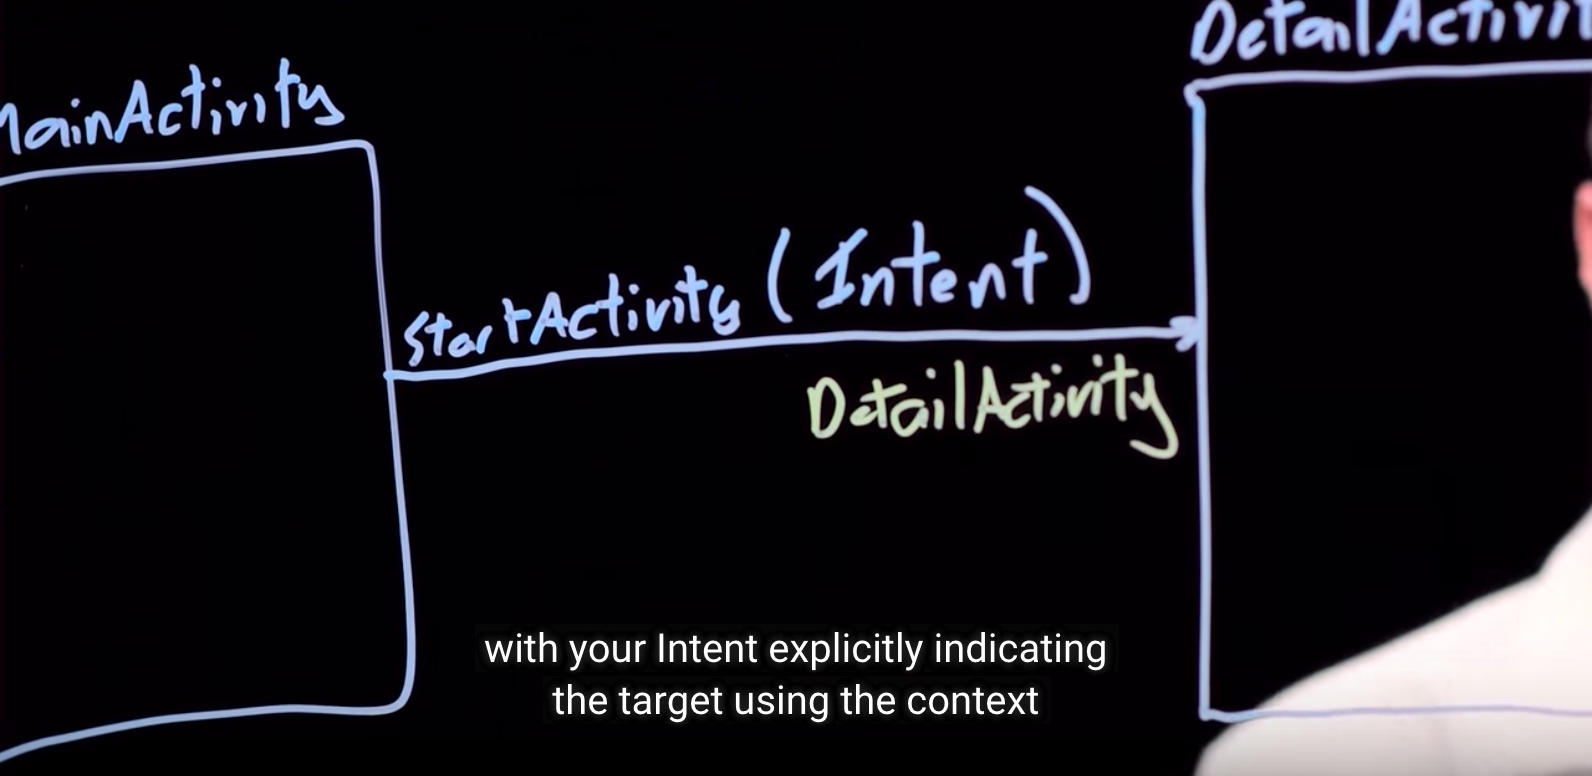 MainActivity
DetailActivi
StartActivity (Intent)
DetailActivity
with your Intent explicitly indicating
the target using the context